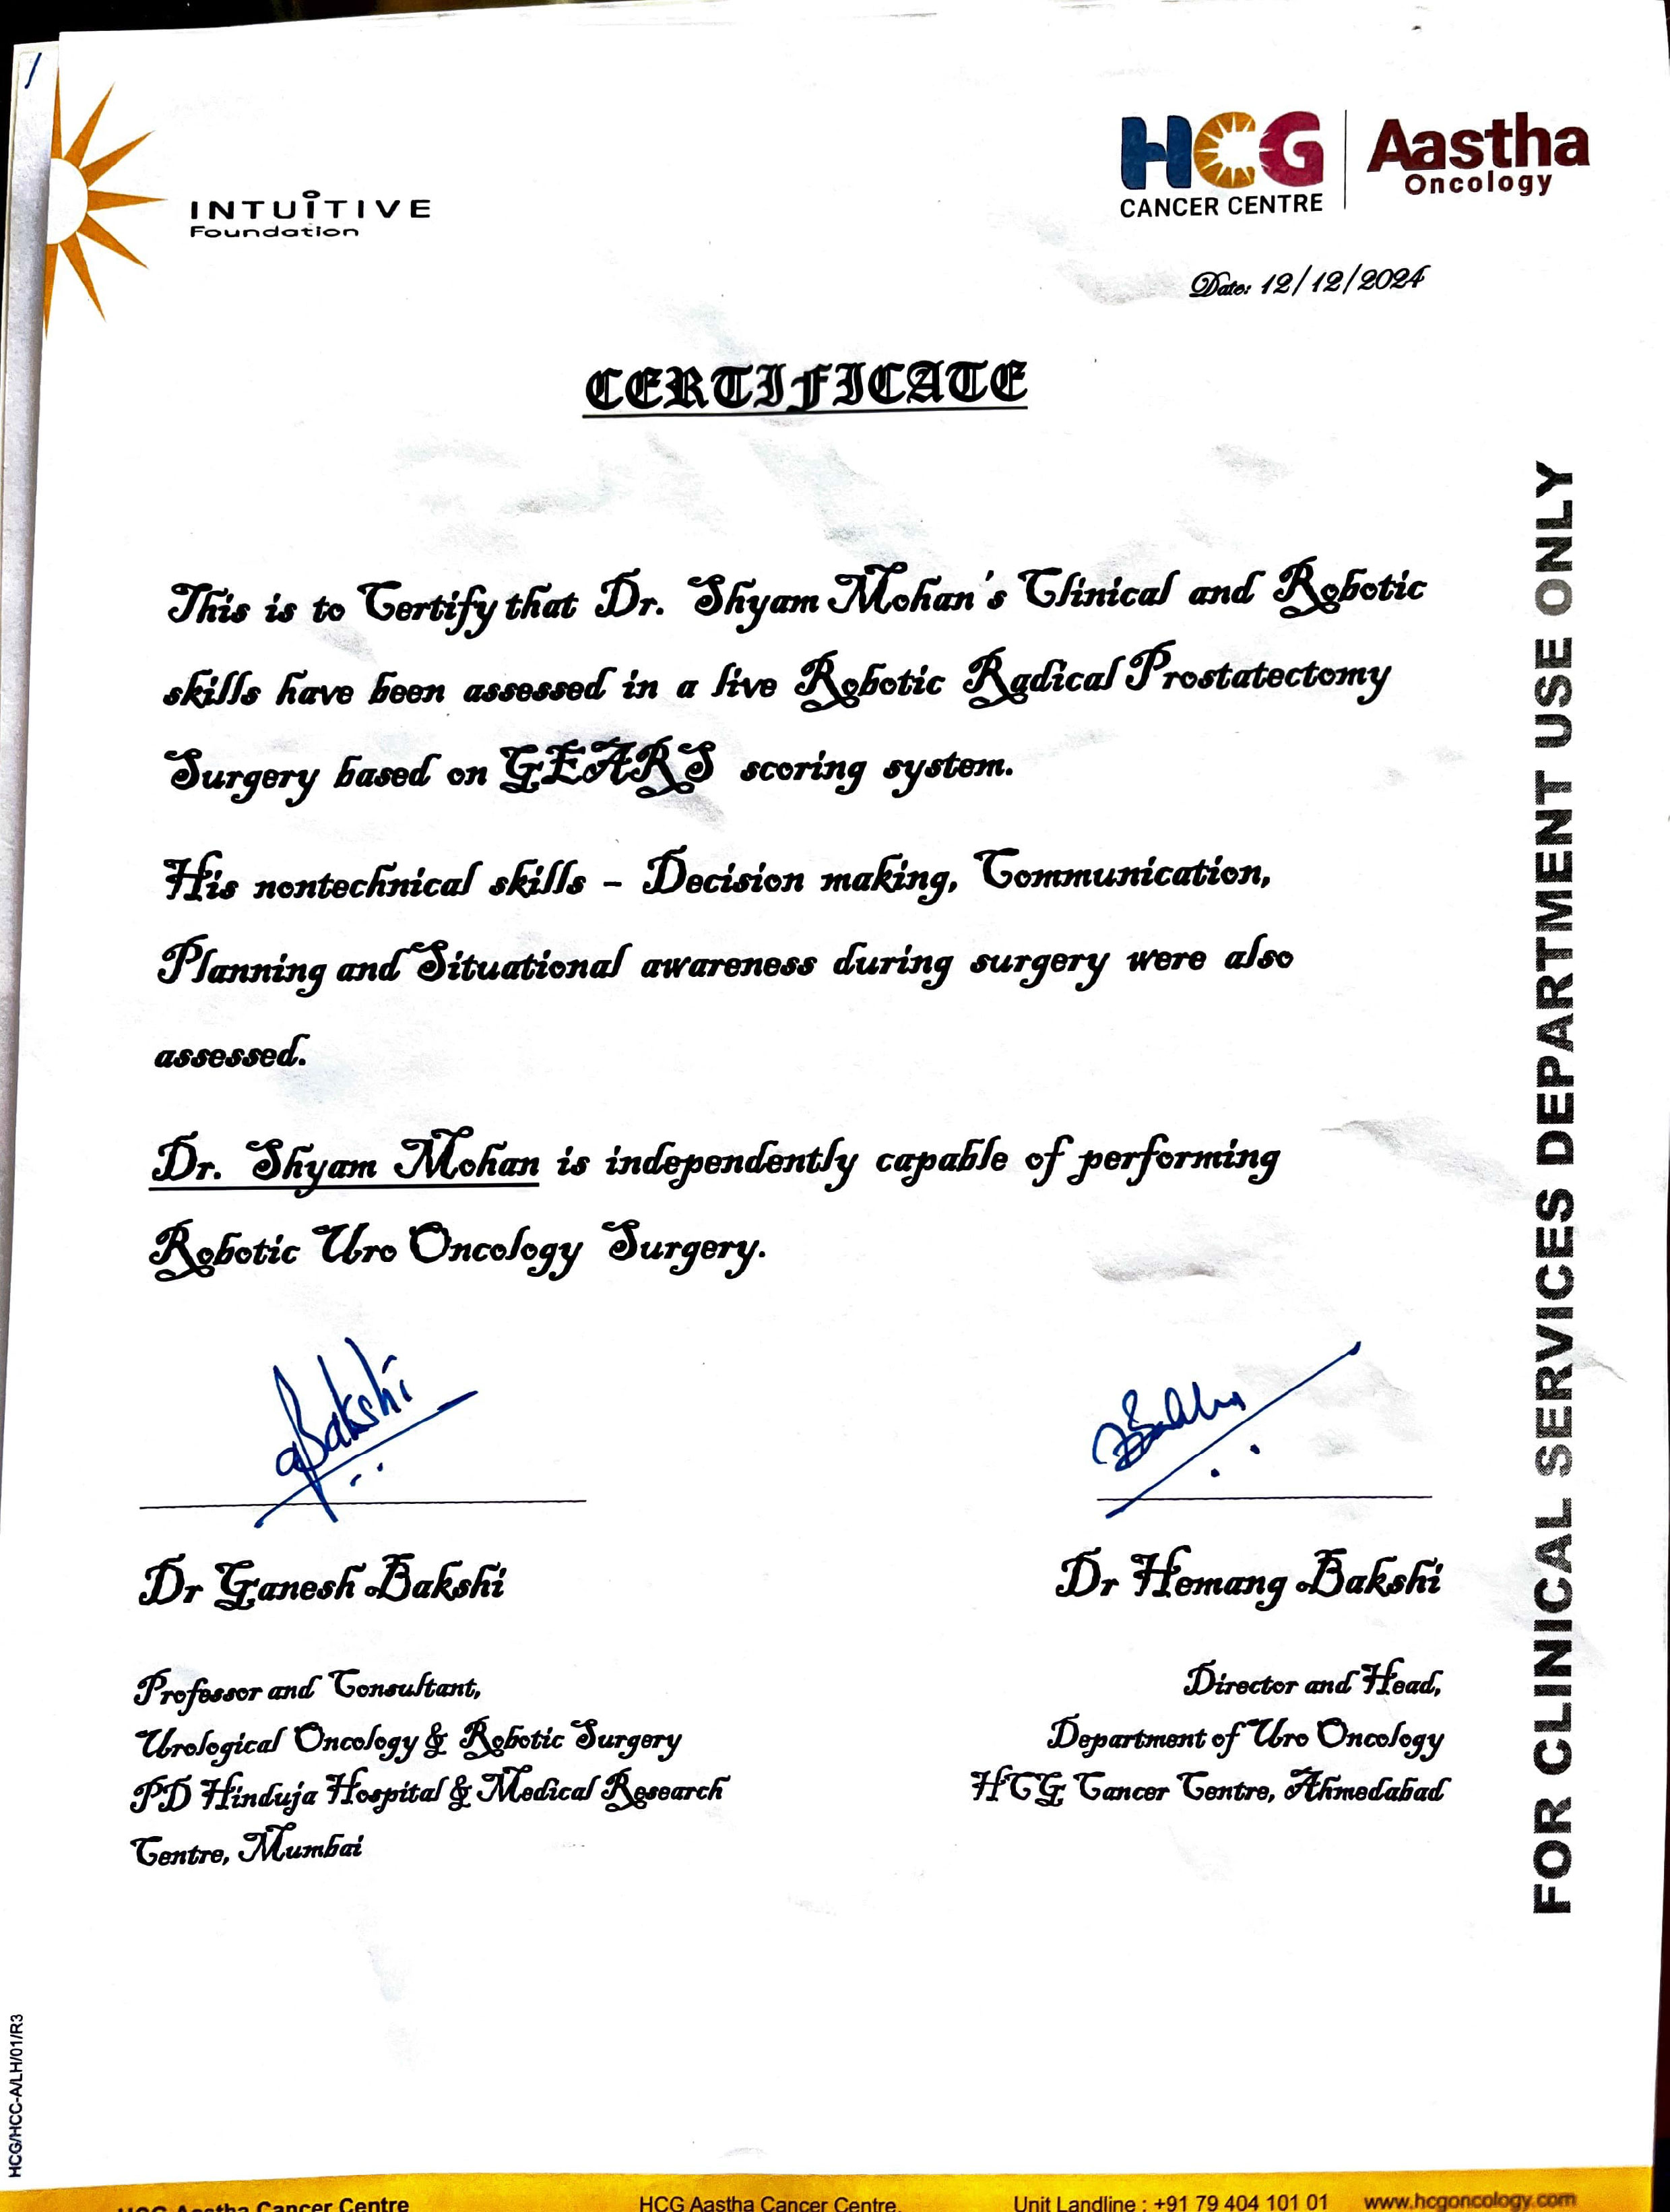 INTUITIVE
Foundation
HCG
CANCER CENTRE
Aastha
Oncology
Date: 12/12/2024
CERTIFICATE
This is to Certify that Dr. Shyam Mohan's Clinical and Robotic
skills have been assessed in a live Robotic Radical Prostatectomy
Surgery based on GEARS scoring system.
His nontechnical skills – Decision making, Communication,
Planning and Situational awareness during surgery were also
assessed.
Dr. Shyam Mohan is independently capable of performing
Robotic Uro Oncology Surgery.
Bakshi
Dr Ganesh Bakshi
Professor and Consultant,
Urological Oncology & Robotic Surgery
PD Hinduja Hospital & Medical Research
Centre, Mumbai
Dr Hemang Bakshi
Director and Head,
Department of Uro Oncology
HCG Cancer Centre, Ahmedabad
FOR CLINICAL SERVICES DEPARTMENT USE ONLY
HCG/HCC-A/LH/01/R3
HCG Aastha Cancer Centre
HCG Aastha Cancer Centre,
Unit Landline : +91 79 404 101 01
www.hcgoncology.com